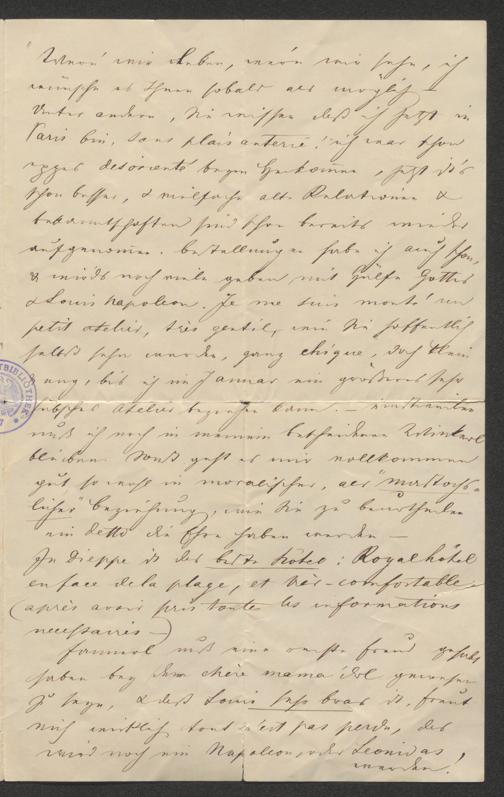 Wenn wir leben, wenn wir sehn, ich
wünsche es Ihnen sobald als möglich –
Unter andern, Sie wissen daß ich jetzt in
Paris bin, sans plaisanterie! ich war schon
désorienté beym Herkommen, jetzt ist's
schon besser, & vielfache alte Relationen &
bekanntschaften sind schon bereits wieder
aufgenommen. bestellungen habe ich auch schon,
& wird's noch viele geben mit Hülfe Gottes
& Louis Napoleon. Je me suis monté un
petit atelier, très gentil, wie Sie hoffentlich
selbst sehn werden, ganz chique, doch klein
bis ich im Januar ein größeres sehr
hübsches Atelier beziehen kann. – einstweilen
muß ich noch in meinem bescheidenen Winkerl
bleiben. Sonst geht es mir vollkommen
gut so wohl in moralischer, als
licher" beziehung, wie Sie zu beurtheilen
ein detto die Ehre haben werden –
In Dieppe ist das beste Hôtel: Royal hôtel
en face de la plage, et très-comfortable
(après avoir pris toute les informations
necessaires –)
muß eine Freud gehabt
haben bey dem chère mama gewesen
zu seyn, & daß Louis sehr brav ist, freut
mich wirklich tout n'est pas perdu, der
wird noch ein Napoleon, oder Leonidas
werden!